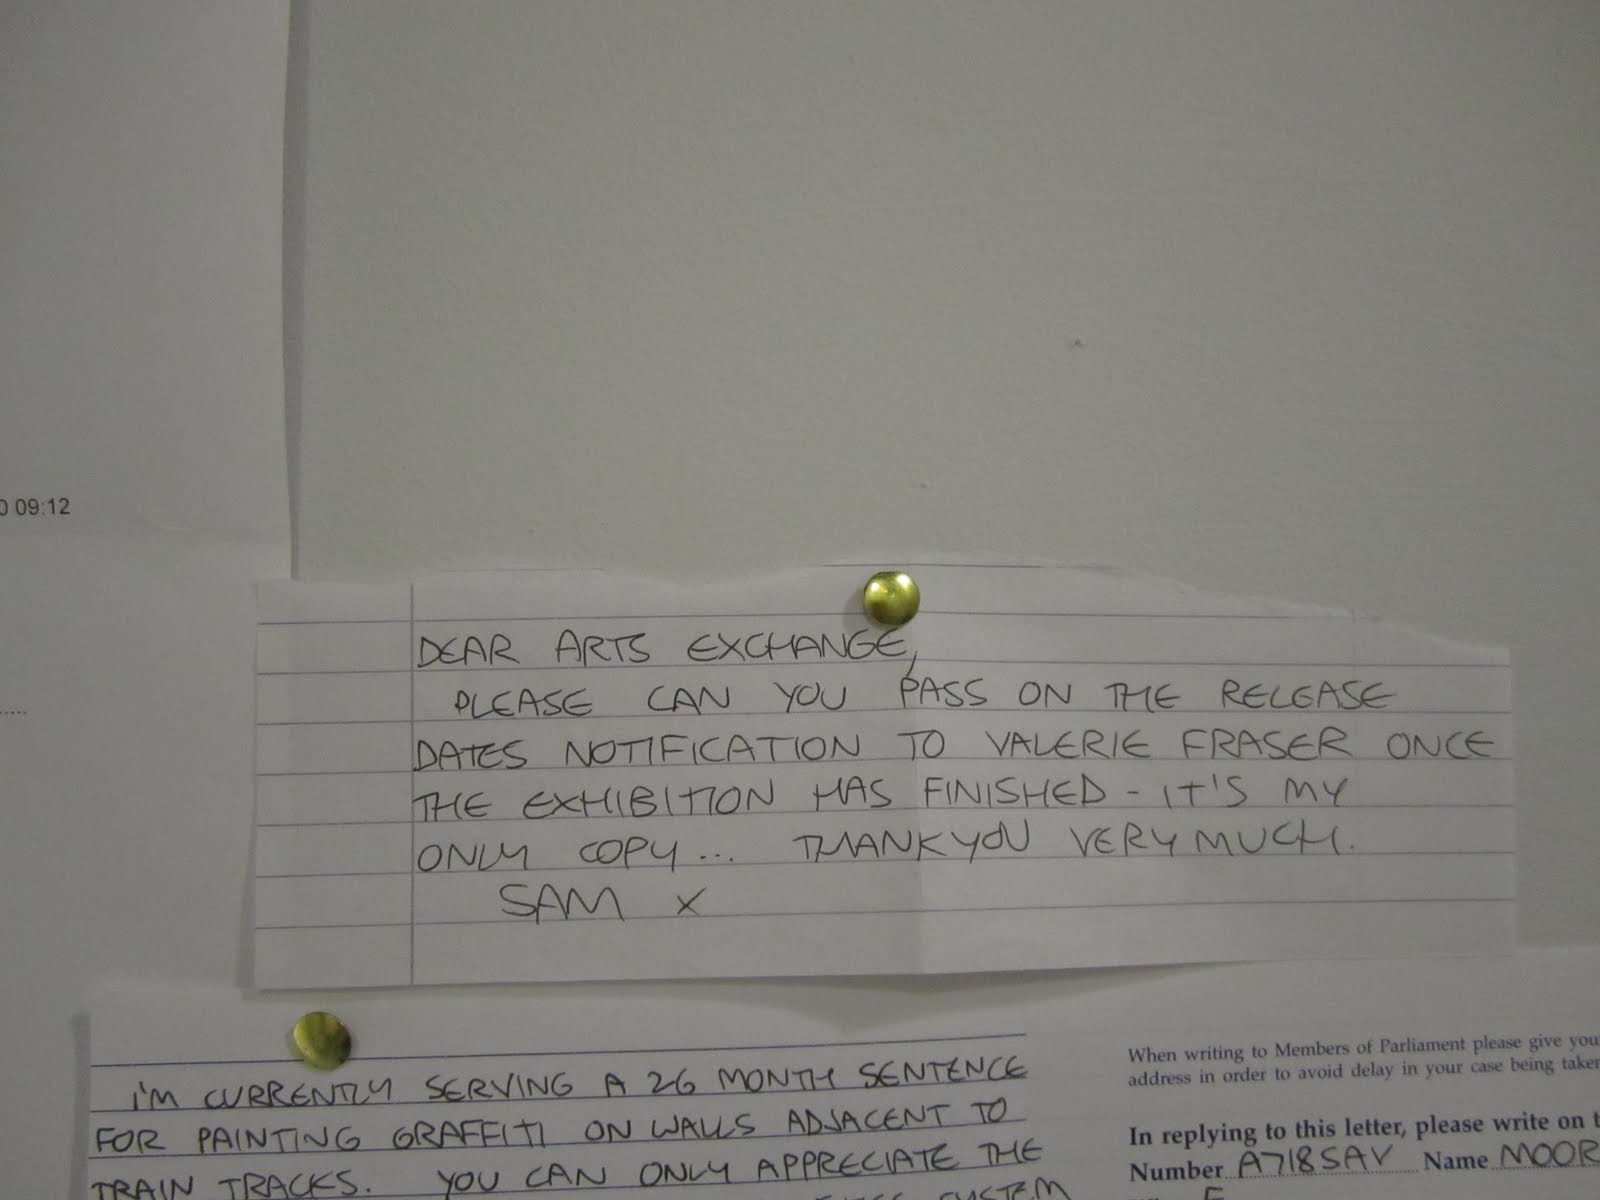 0 09:12
DEAR ARTS EXCHANGE,
PLEASE CAN YOU PASS ON THE RELEASE
DATES NOTIFICATION TO VALERIE FRASER ONCE
THE EXHIBITION HAS FINISHED - IT'S MY
ONLY COPY... THANKYOU VERY MUCH.
SAM X
I'M CURRENTLY SERVING A 26 MONTH SENTENCE
FOR PAINTING GRAFFITI ON WALLS ADJACENT TO
TRAIN TRACKS. YOU CAN ONLY APPRECIATE THE
SYSTEM
When writing to Members of Parliament please give you
address in order to avoid delay in your case being taken
In replying to this letter, please write on t
Number A7185AV Name MOOR